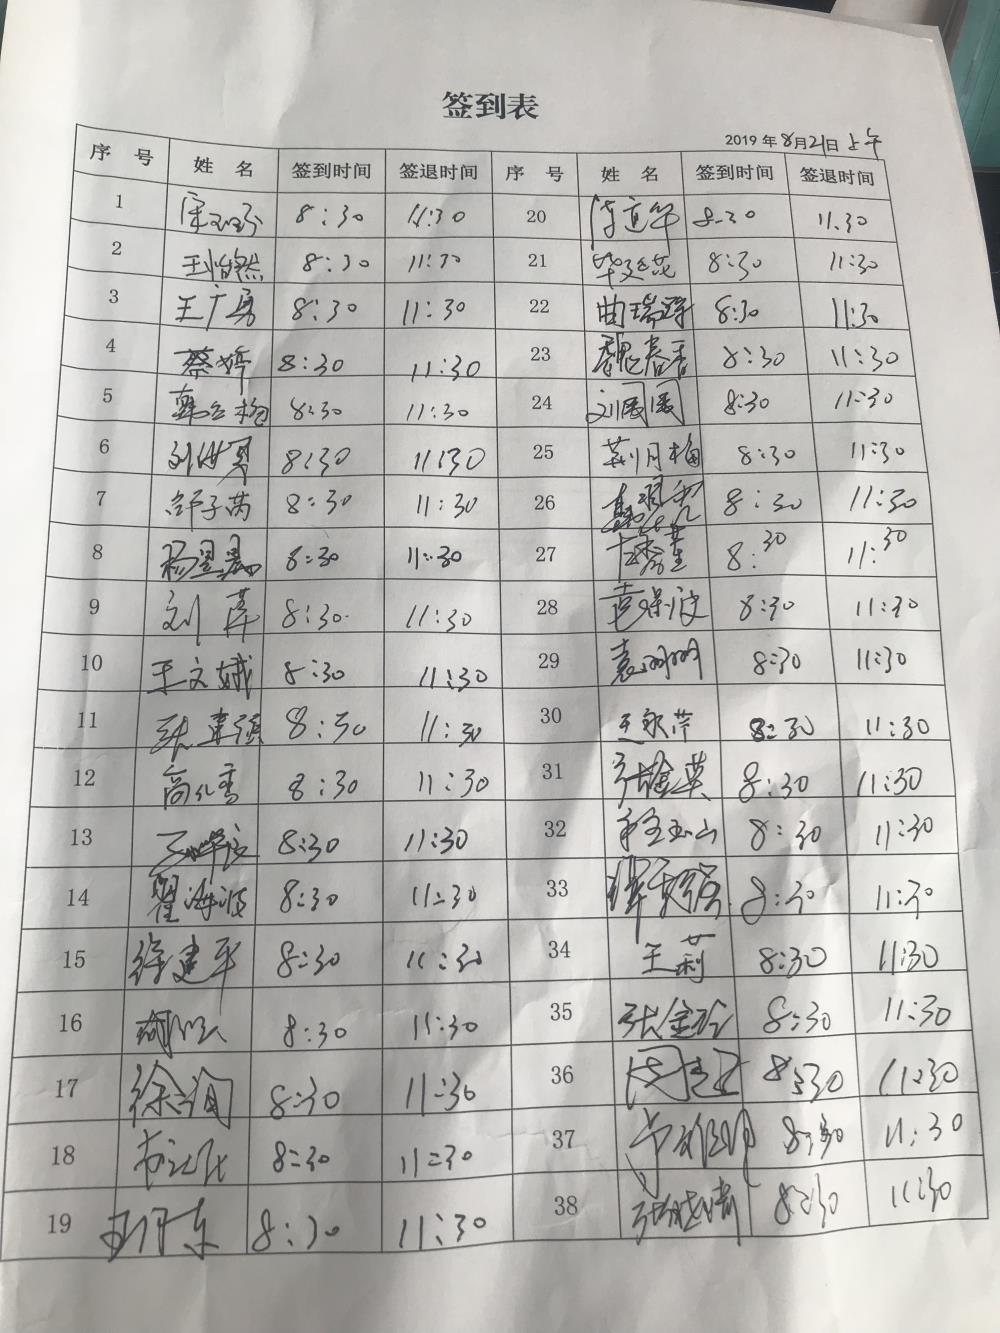 签到表
2019年8月21日上午
序号 姓名 签到时间 签退时间 序号 姓名 签到时间 签退时间
1 8:30 11:30 20 8:30 11:30
2 王怡然 8:30 11:30 21 8:30 11:30
3 王广勇 8:30 11:30 22 曲瑞玲 8:30 11:30
4 蔡婷 8:30 11:30 23 魏春香 8:30 11:30
5 8:30 11:30 24 8:30 11:30
6 刘世勇 8:30 11:30 25 荆月梅 8:30 11:30
7 舒子芮 8:30 11:30 26 8:30 11:30
8 8:30 11:30 27 8:30 11:30
9 刘萍 8:30 11:30 28 8:30 11:30
10 王文娥 8:30 11:30 29 袁明明 8:30 11:30
11 8:30 11:30 30 王永萍 8:30 11:30
12 8:30 11:30 31 8:30 11:30
13 8:30 11:30 32 程玉山 8:30 11:30
14 翟海波 8:30 11:30 33 8:30 11:30
15 徐建平 8:30 11:30 34 王莉 8:30 11:30
16 8:30 11:30 35 张金玲 8:30 11:30
17 徐润 8:30 11:30 36 8:30 11:30
18 8:30 11:30 37 8:30 11:30
19 8:30 11:30 38 8:30 11:30